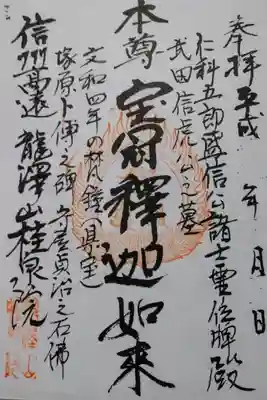 奉拝平成 年 月 日
仁科五郎盛信公諸士霊位牌殿
武田信虎公之墓
本尊 宝冠釋迦如来
文和四年の梵鐘(県宝)
塚原卜傳之碑 守屋貞治之石佛
信州高遠 龍澤山桂泉院